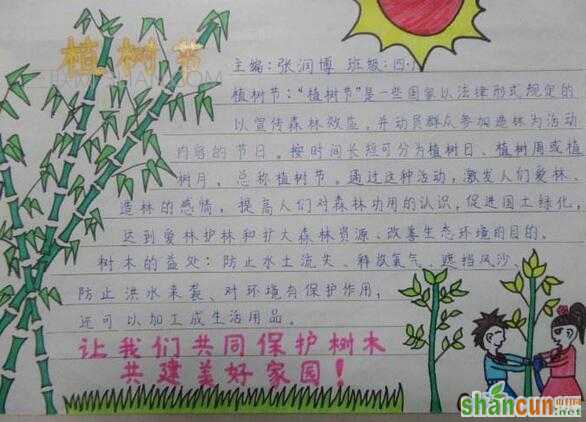 植树节
主编:张润博 班级:四·1
植树节:“植树节”是一些国家以法律形式规定的
以宣传森林效益,并动员群众参加造林为活动
内容的节日。按时间长短可分为植树日、植树周或植
树月,总称植树节。通过这种活动,激发人们爱林、
造林的感情,提高人们对森林功用的认识,促进国土绿化,
达到爱林护林和扩大森林资源、改善生态环境的目的。
树木的益处:防止水土流失、释放氧气、遮挡风沙、
防止洪水来袭、对环境有保护作用,
还可以加工成生活用品。
让我们共同保护树木
共建美好家园!
shancun
.net